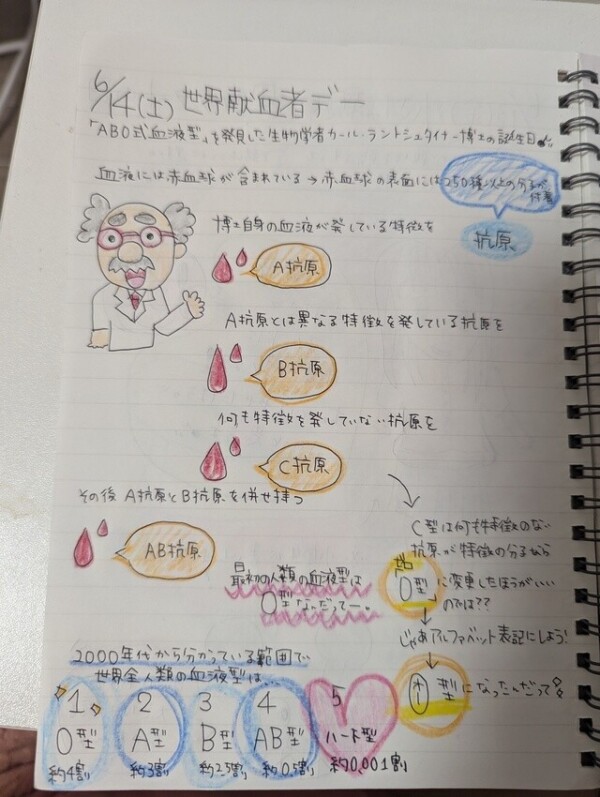 6/14(土) 世界献血者デー
「ABO式血液型」を発見した生物学者カール・ラントシュタイナー博士の誕生日
血液には赤血球が含まれている→赤血球の表面には250種以上の分子が
付着
抗原
博士自身の血液が発している特徴を
A抗原
A抗原とは異なる特徴を発している抗原を
B抗原
何も特徴を発していない抗原を
C抗原
その後 A抗原とB抗原を併せ持つ
AB抗原
C型は何も特徴のない
抗原が特徴の分子なら
O型に変更したほうがいい
のでは??
じゃあアルファベット表記にしよう!
型になったんだって
最初の人類の血液型は
O型なんだってー。
2000年代から分かっている範囲で
世界全人類の血液型は…
1 2 3 4 5
O型 A型 B型 AB型 ハート型
約4割 約3割 約2.5割 約0.5割 約0.001割